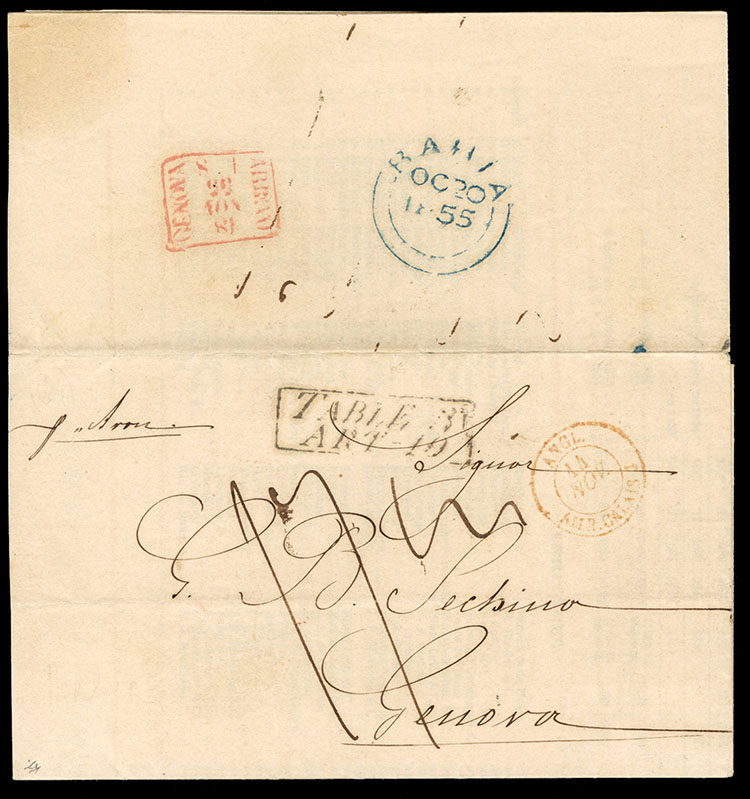 GENOVA
ARRIVO
BAHIA
OC 20
1855
p. Avon
TABLE BY
ART-19
Signor
ANGL.
14
NOV
AMB. CALAIS
G. B. Sechino
Genova